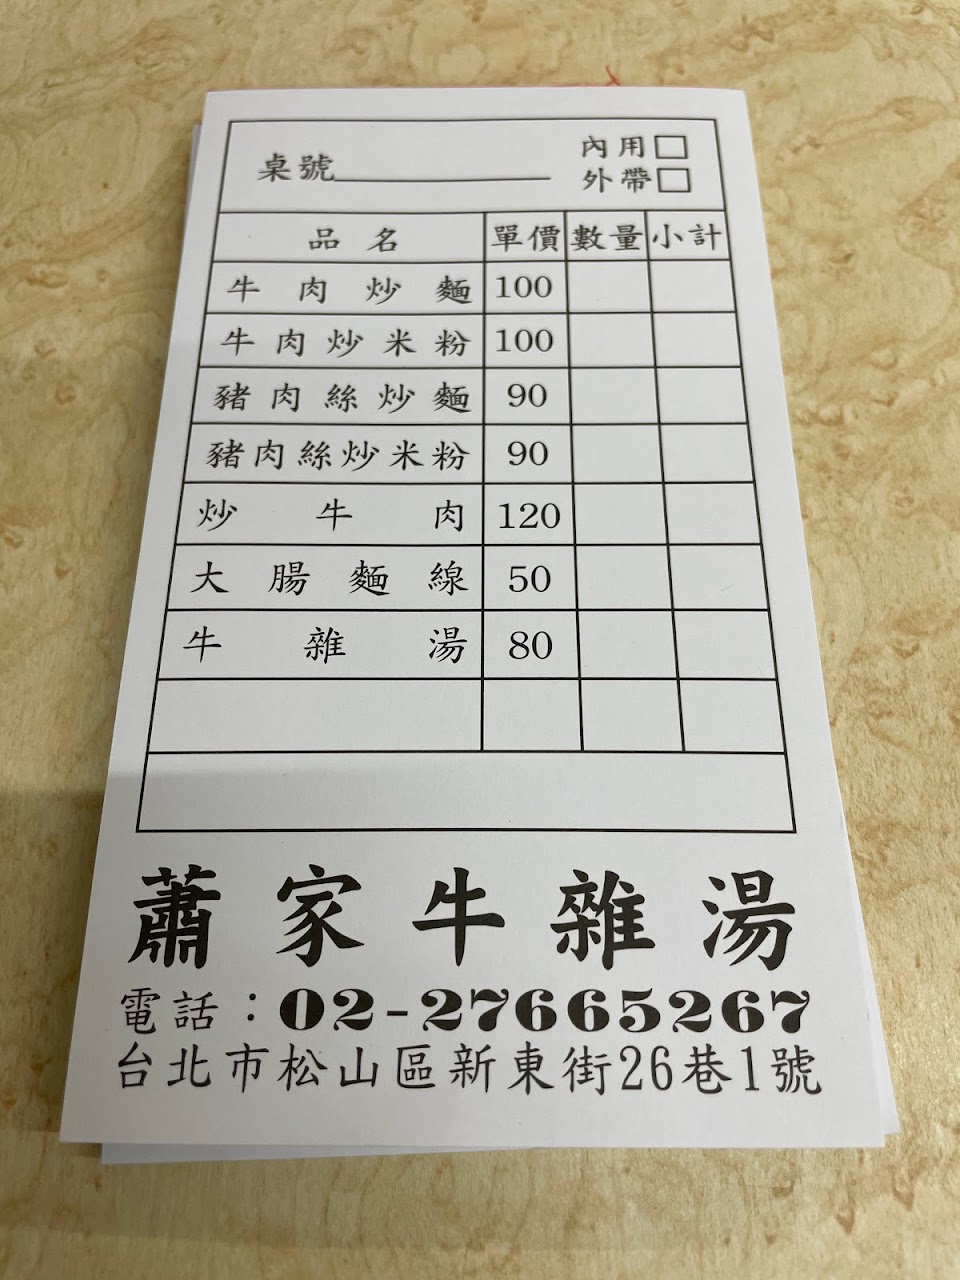 桌號 內用
外帶
品名 單價 數量 小計
牛肉炒麵 100
牛肉炒米粉 100
豬肉絲炒麵 90
豬肉絲炒米粉 90
炒牛肉 120
大腸麵線 50
牛雜湯 80
蕭家牛雜湯
電話：02-27665267
台北市松山區新東街26巷1號